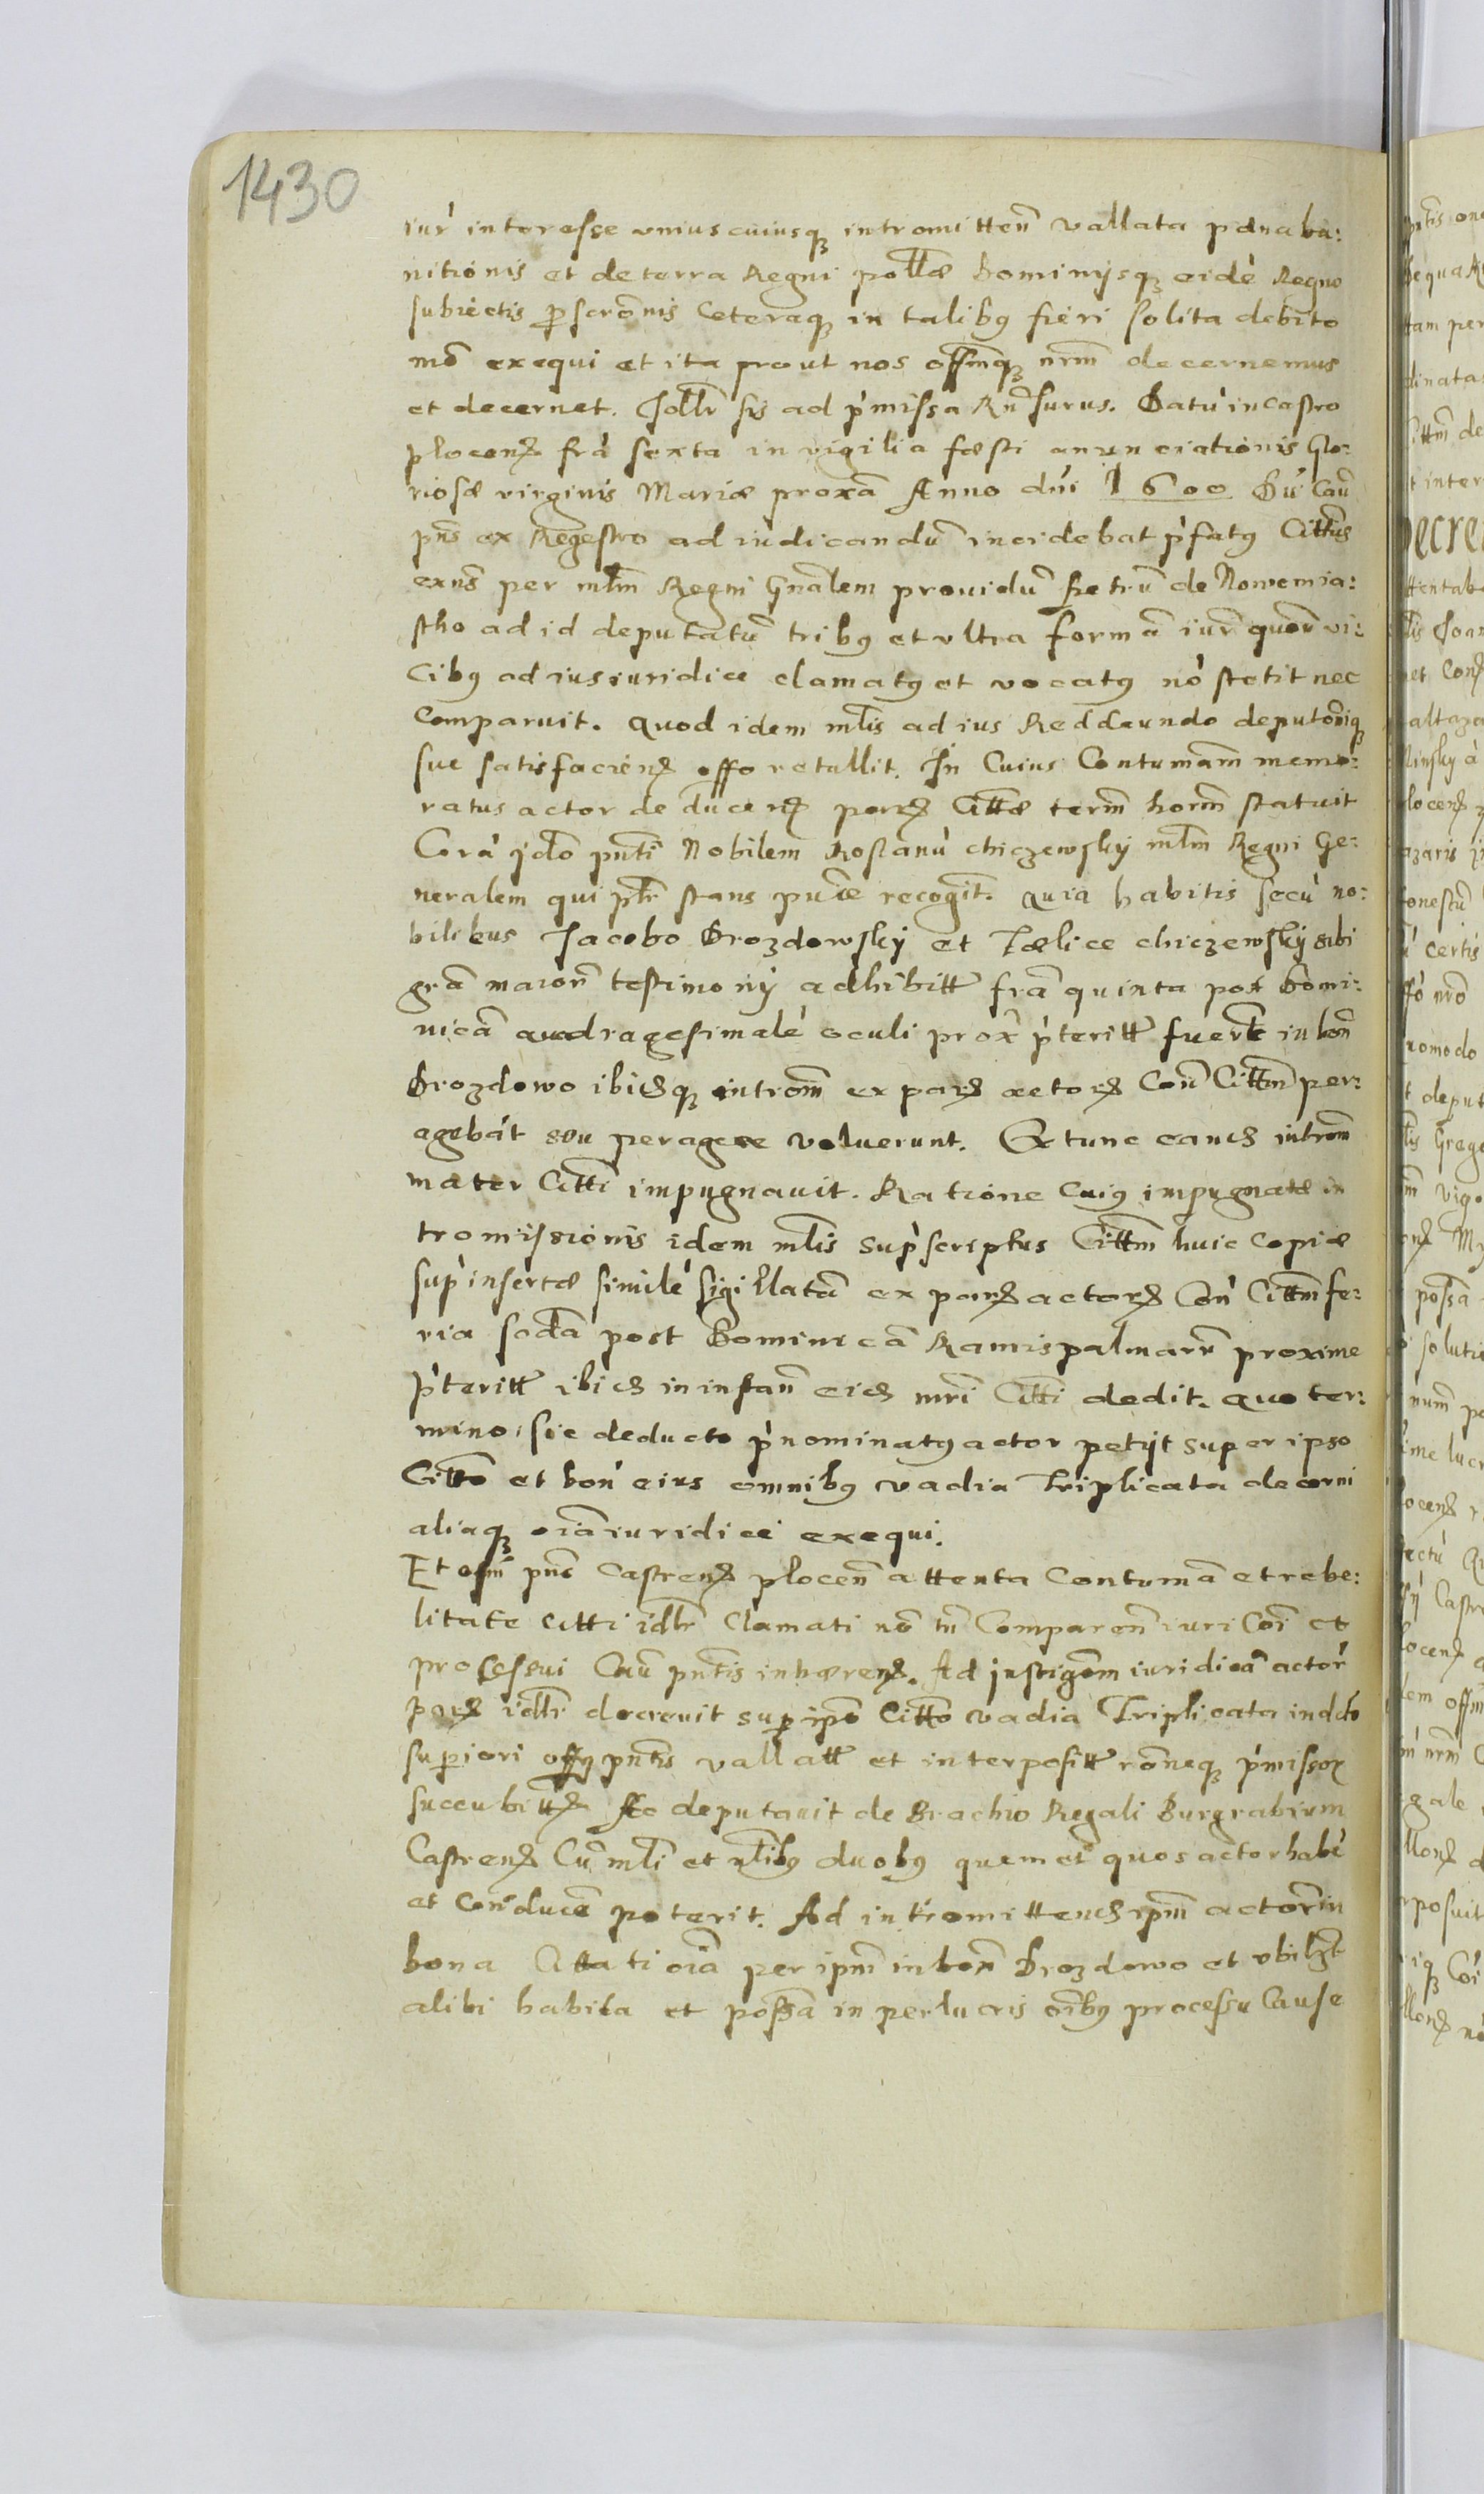 1430
iur interesse vnius cuiusq intromitten vallata pæna ba:
nitionis et de terra Regni pollæ Dominijsq eide Regno
subiectis pscronis Ceteraq in talibg fieri solita debito
mo exequi et ita prout nos offmq nrm decernemus
et decernet. sis ad pmissa Rnsurus. Datu in Castro
plocen fra sexta in vigilia fæsti anunciationis Glo:
riosæ virginis Mariæ proxa Anno dni 1600 Du Cau
pns ex Regestro ad iudicandu incidebat pfatg Cittus
exns per mlm Regni Gnalem prouidu Petru de Nowemia:
stho ad id deputatu tribg et vltra forma iur quor vi:
Cibg ad ius iuridice clamatg et vocatg no stetit nec
Comparuit. Quod idem mlis ad ius Reddeundo deputoniq
sue satisfaciens offo retullit. In Cuius Contumam memo:
ratus actor deducen parts Cittæ term horm statuit
Cora jdo pnti Nobilem Roslanu chiczewskÿ mlm Regni Ge:
neralem qui ptr stans puce recogit. quia habitis secu no:
bilibus Jacobo Drozdowskÿ et Fælice chiczewskÿ sibi
gra maior testimonÿ adhibitt fra quinta post Domi:
nica quadragesimale oculi prox pteritt fuert in bon
Drozdowo ibidq introm ex parts actors Con Cittm per:
agebat seu peragere voluerunt. Ex tunc eand introm
mater Citti impugnauit. Ratione Cuig impugnatæ in
tromissionis idem mlis supscriptus Cittm huic Copiæ
sup insertæ simile sigillata ex parts actors Con Cittm fe:
ria scda post Dominica Ramispalmaru proxime
pteritt ibid in instan eid mri Citti dedit. quo ter:
mino sic deducto pnominatg actor petÿt super ipso
Citto et bon eius omnibg vadia Triplicata decerni
aliaq oia iuridice exequi.
Et offm pns Castrens plocen attenta Contuma et rebe:
litate citti idtr Clamati no tn Comparen iuri Coi et
processui Cau pntis inhærens. Ad instigom iuridica actor
parts idtr decreuit sup ipso Citto vadia Triplicata in dcto
superiori offg pntis vallatt et interpositt roneq pmissor
deputauit de Brachio Regali Burgrabium
Castrens Cu mli et nlibg duobg quem et quos actor habe
et Conduce poterit. Ad intromittend ipm actorem in
bona Cittati oia per ipm in bon Drozdowo et vbilzt
alibi habita et possa in perlucris oibg processu Cause